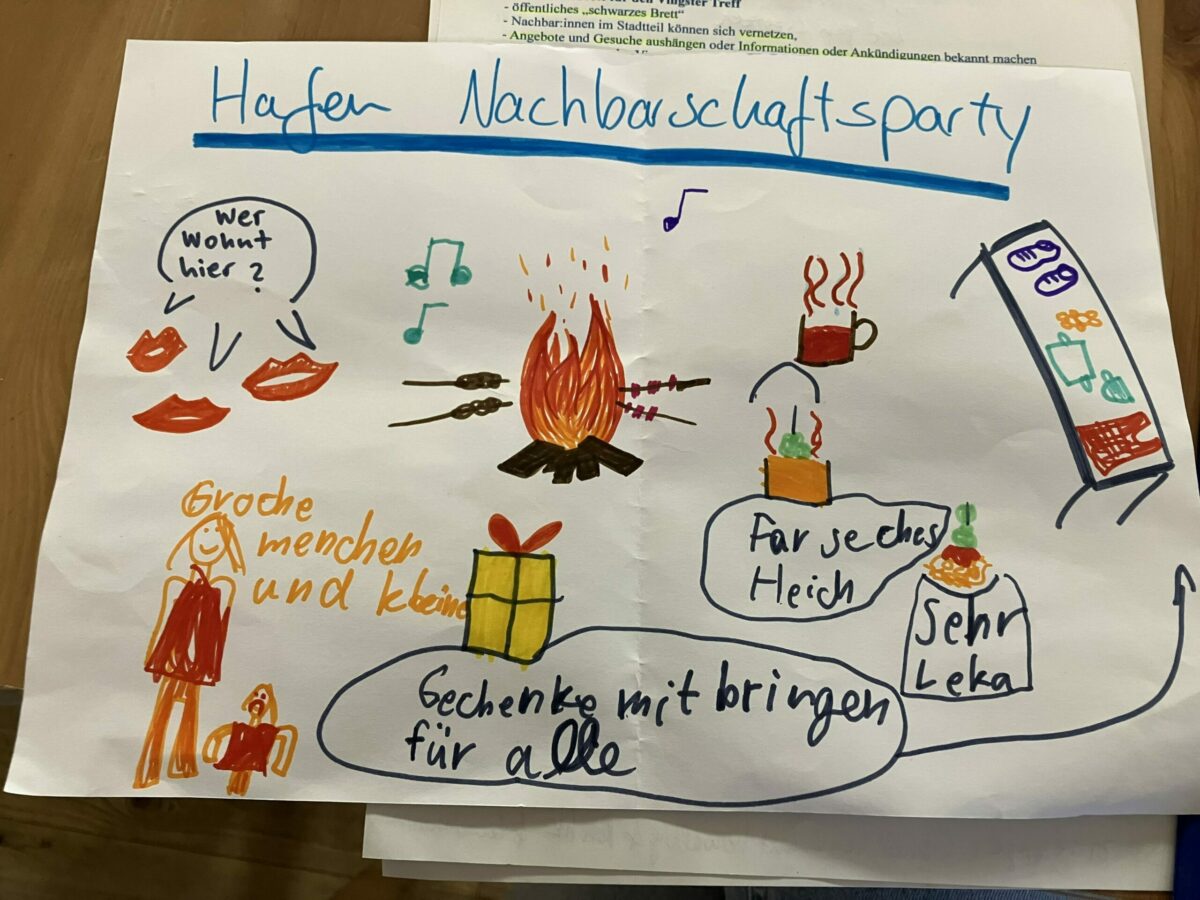 - öffentliches „schwarzes Brett“
- Nachbar:innen im Stadtteil können sich vernetzen,
- Angebote und Gesuche aushängen oder Informationen oder Ankündigungen bekannt machen
Hafen Nachbarschaftsparty
Wer
Wohnt
hier?
Groche
menchen
und kleine
Far seches
Heich
Sehr
Leka
Gechenke mit bringen
für alle